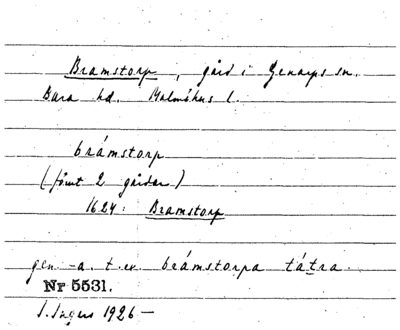 Bramstorp, gård i Genarps sn.
Bara hd. Malmöhus l.
brámstorp
(förut 2 gårdar)
1624: Bramstorp
gen -a. t. ex. brámstorpa tátra.
Nr 5531.
I. Ingers 1926 —